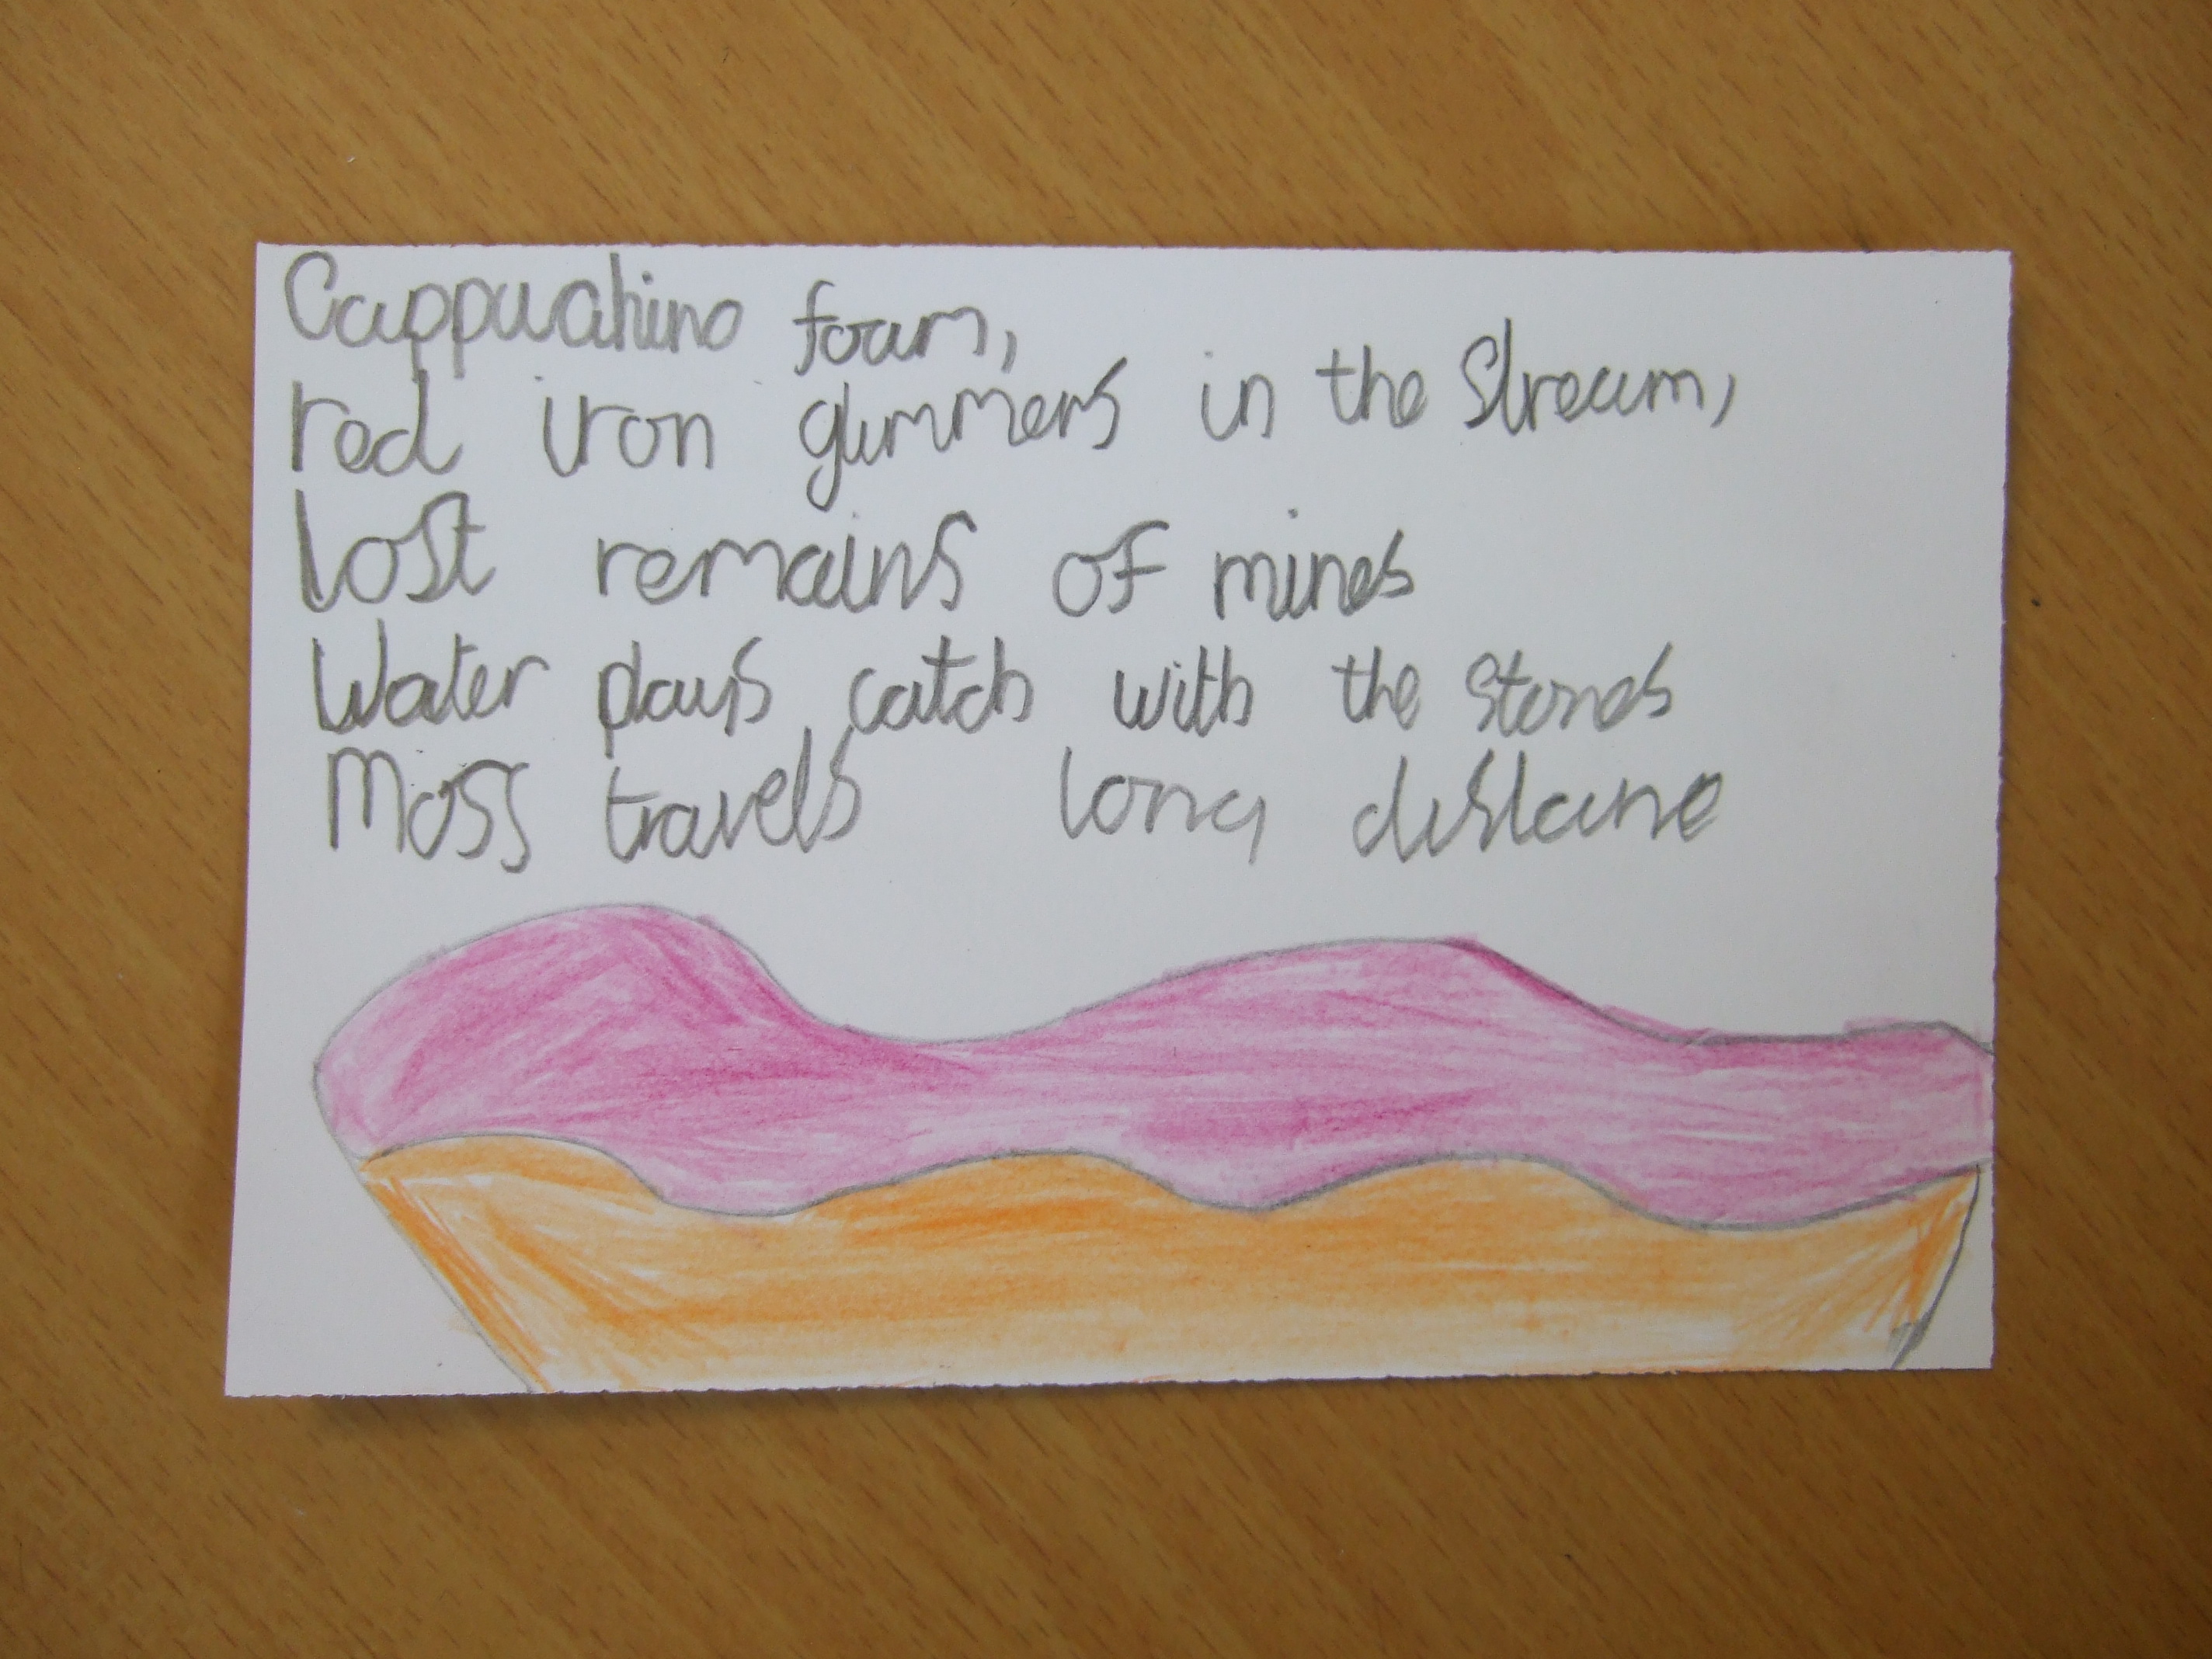 Cappuchino foam,
red iron glimmers in the stream,
lost remains of mines
Water plays catch with the stones
Moss travels long distane